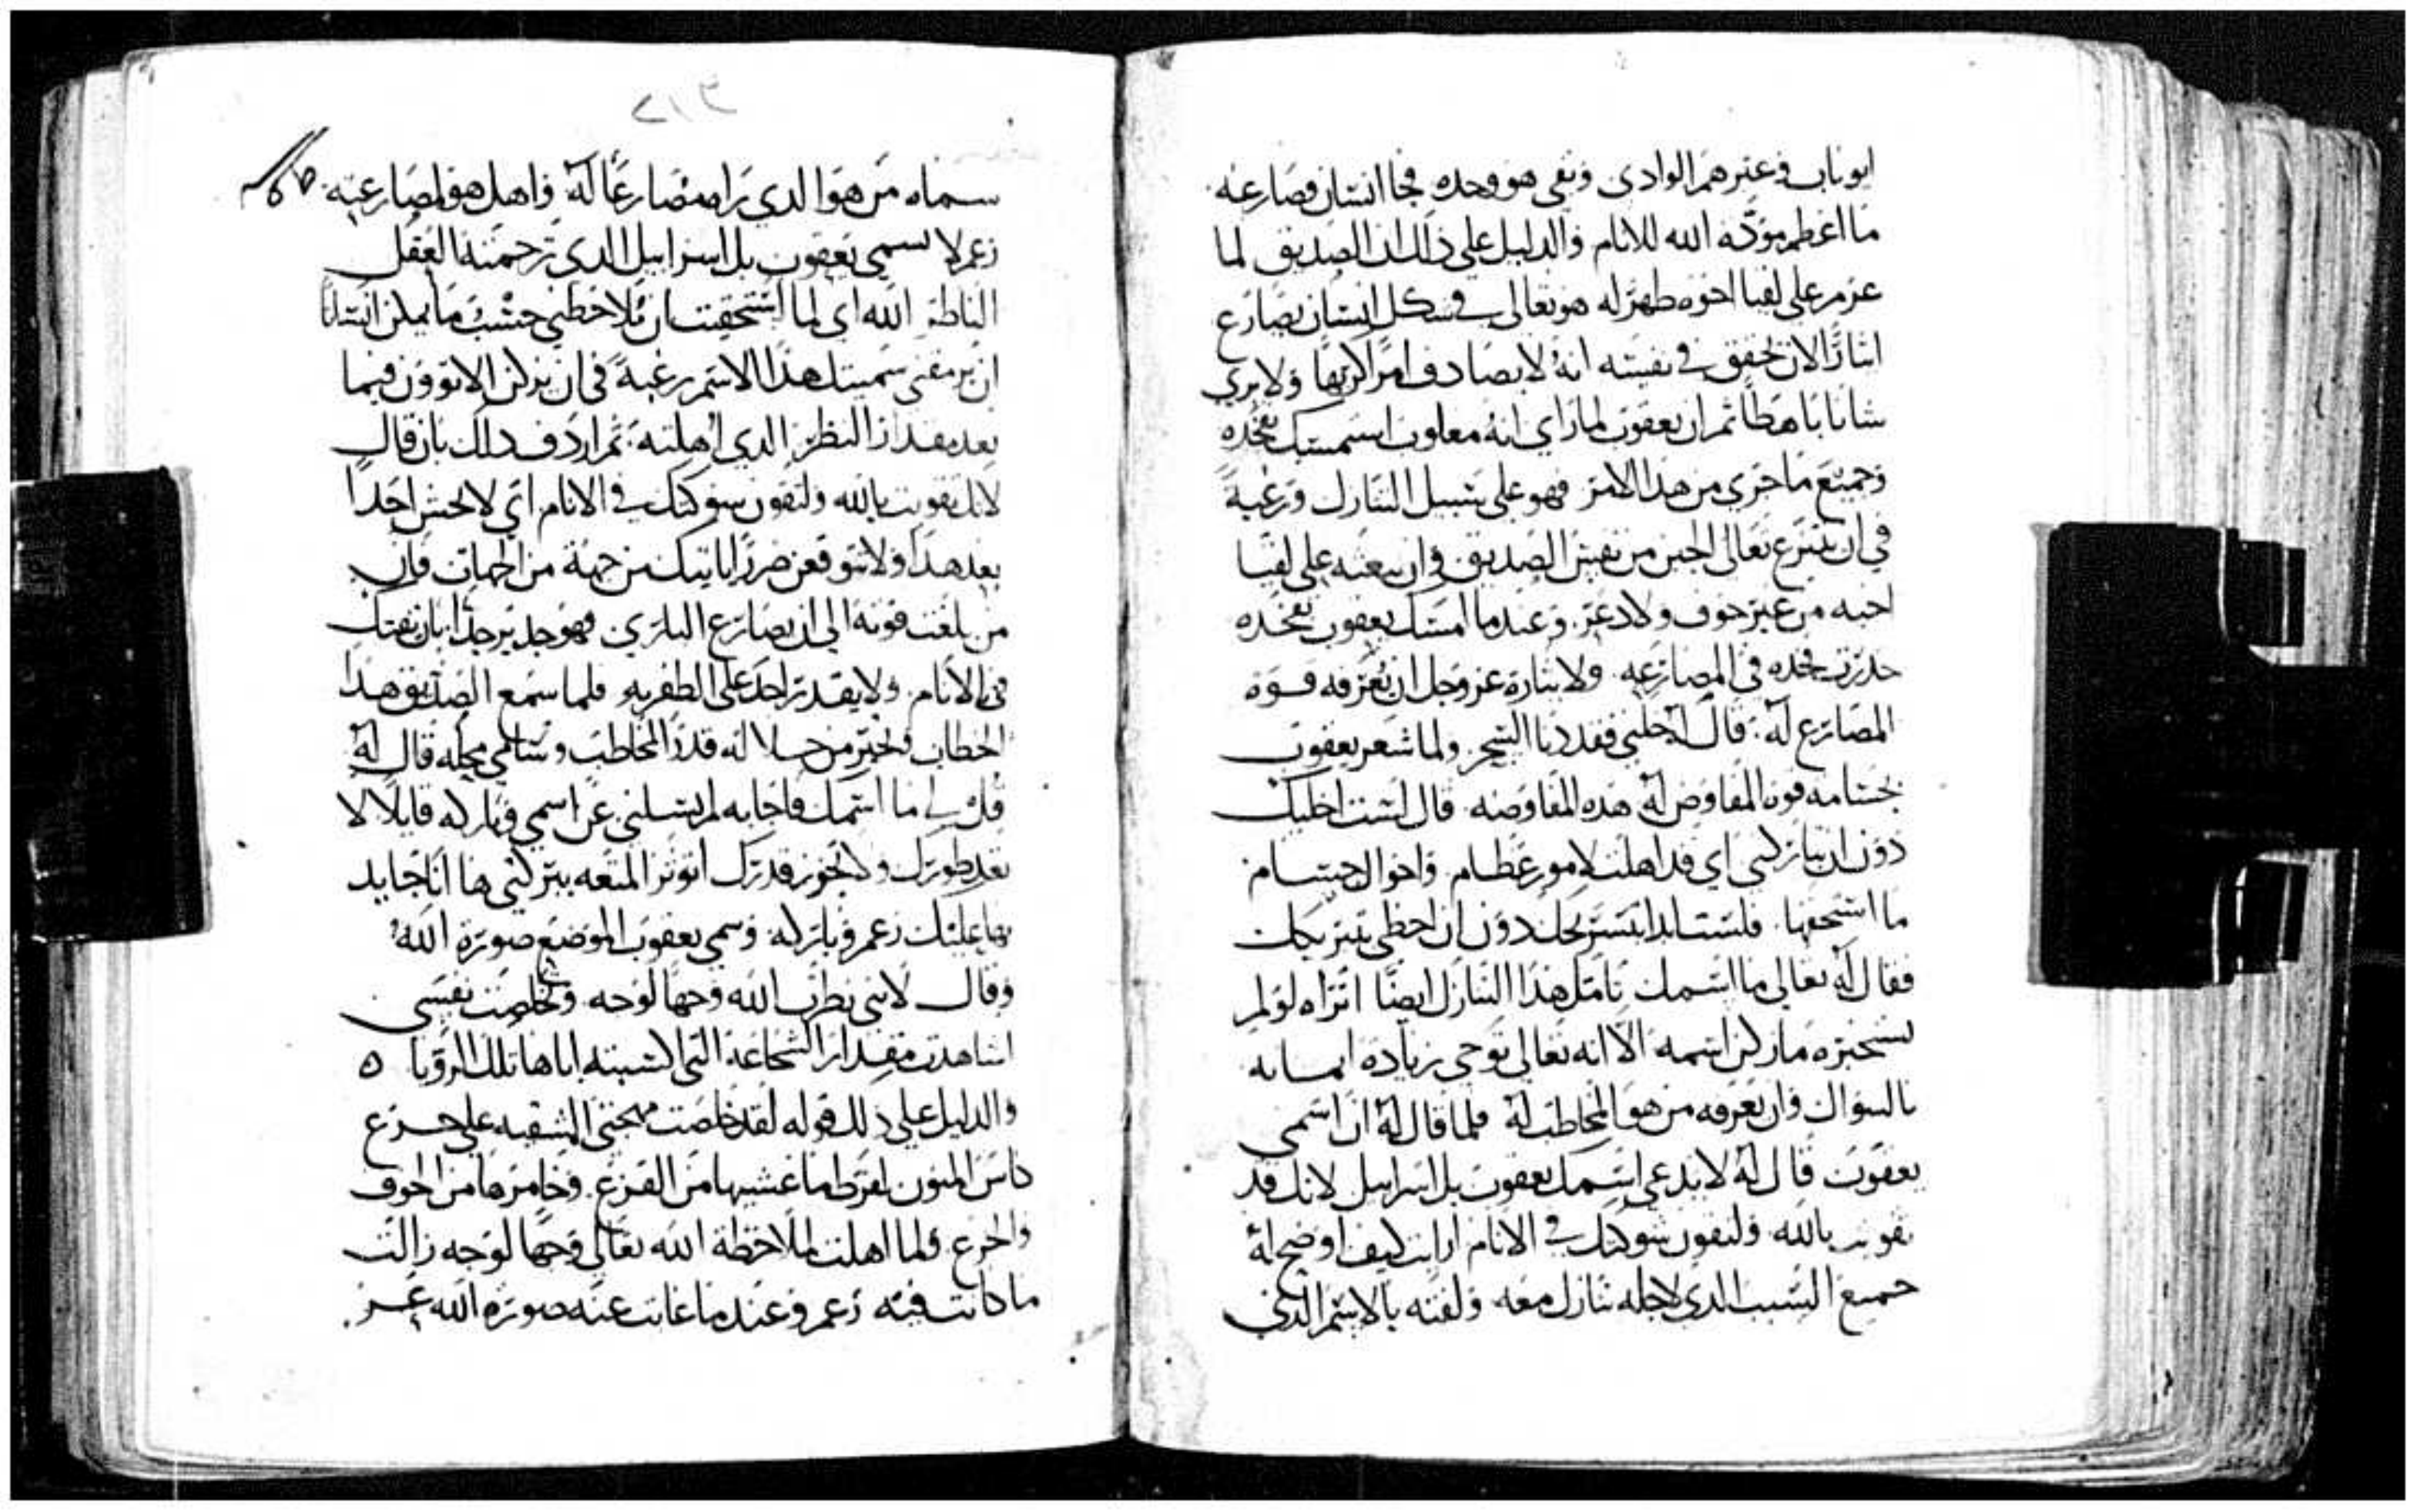 وعبرهم الوادى وبقى هو وحده فجا انسان فصارعه
ما اعظم مودة الله للانام والدليل على ذلك ان الصديق لما
عزم على لقيا اخوه ظهر له هو تعالى في شكل انسان يصارع
لان تحقق في نفسه انه لا يصادف امرا كريها ولا يري
شانا باهظا ثم ان يعقوب لما راي انه معاون استمسك بفخده
وجميع ما جرى من هدا الامر فهو على سبيل التنازل ورغبة
في ان ينتزع تعالى الجبن من نفس الصديق وان يبعثه على لقيا
اخيه من غير خوف ولا دعر. وعندما امسك يعقوب بفخده
خدرت فخده في المصارعه. ولايثاره عز وجل ان يعرفه قوة
المصارع له. قال له خليني فقد دنا السحر. ولما شعر يعقوب
بجسامه قوة المفاوض له هده المفاوضه. قال لست اخليك
دون ان تباركني اي قد اهلت لامور عظام. واحوال جسام
ما استحقها. فلست ابدا بتسريحك دون ان احظى بتبريكك
فقال له تعالى ما اسمك تامل هدا التنازل ايضا اتراه لو لم
يستخبره ما زكن اسمه الا انه تعالى توخى زيادة ايمانه
بالسوال وان يعرفه من هو المخاطب له فلما قال له ان اسمي
يعقوب قال له لا يدعى اسمك يعقوب بل اسراييل لانك قد
تقويت بالله ولتقون شوكتك في الانام ارايت كيف اوضح له
جميع السبب الدي لاجله تنازل معه ولقبه بالاسم الدي
سماه من هو الدي يراه مصارعا له واهل هو لمصارعته.
زعم لا تسمي يعقوب بل اسراييل الدي ترجمته العقل
الناظر الله اي لما استحقيت ان تلاحظني حسب ما يمكن انسانا
ان يرمقني سميتك هدا الاسم رغبة في ان يزكن الاتوون فيما
بعد مقدار النظر الدي اهلته. ثم اردف دلك بان قال
لانك تقويت بالله ولتقون شوكتك في الانام اي لا تخش احدا
بعد هدا ولا تتوقعن ضررا ياتيك من جهة من الجهات فان
من بلغت قوته الى ان يصارع الباري فهو جدير جدا بان يفتك
في الانام. ولا يقدر احد على الظفر به. فلما سمع الصديق هدا
الخطاب من جلالة قدر المخاطب وتسامي محله قال له
قل لي ما اسمك فاجابه لم تسلني عن اسمي وباركه قايلا لا
تعد طورك ولا تجوز قدرك اتوثر المتعه ببركتي ها انا جايد
بها عليك زعم وباركه وسمي يعقوب الموضع صورة الله
وقال لاني نظرت الله وجها لوجه. وتخلصت نفسي
اشاهدت مقدار الشجاعة التي اكسبته اياها تلك الرويا ه
والدليل على دلك قوله لقد خلصت مهجتي المشفيه على جرع
كاس المنون لفرط ما غشيها من الفزع. وخامرها من الخوف
والجزع ولما اهلت لملاحظة الله تعالى وجها لوجه زالت
ما كانت فيه زعم وعندما غابت عنه صورة الله عبر.